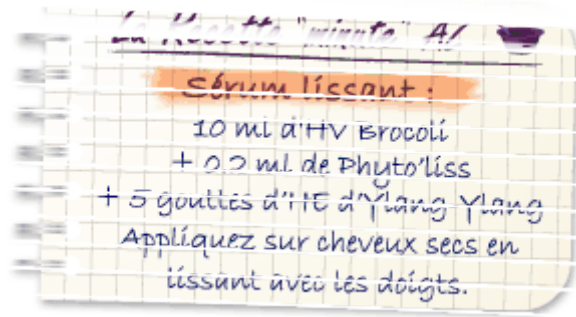 La Recette "minute" AZ
Sérum lissant :
10 ml d'HV Brocoli
+ 0.2 ml de Phyto'liss
+ 5 gouttes d'HE d'Ylang Ylang
Appliquez sur cheveux secs en
lissant avec les doigts.